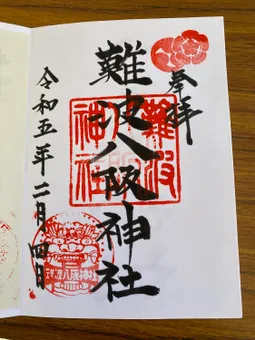 奉拝
難波八阪神社
令和五年二月四日
難波
八阪
神社
難波八阪神社